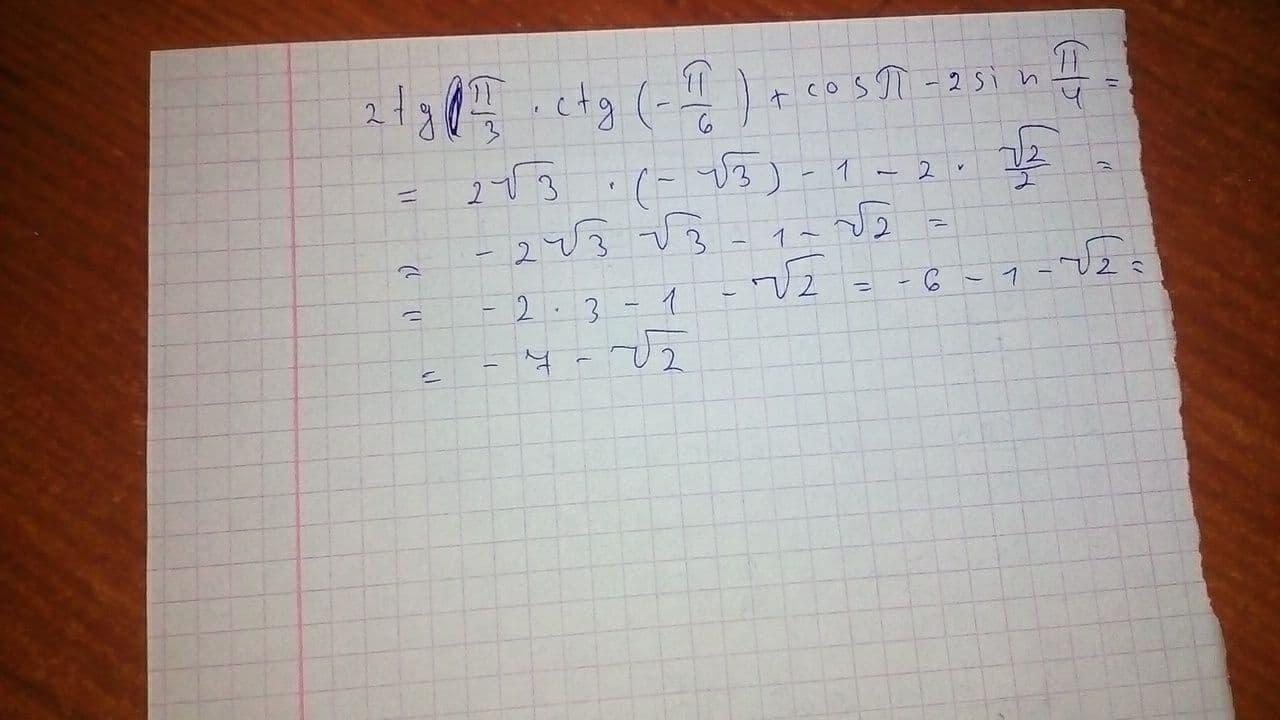 2tg π/3 · ctg (-π/6) + cosπ - 2sin π/4 =
= 2√3 · (-√3) - 1 - 2 · √2/2 =
= -2√3 √3 - 1 - √2 =
= -2 · 3 - 1 - √2 = -6 - 1 - √2 =
= -7 - √2